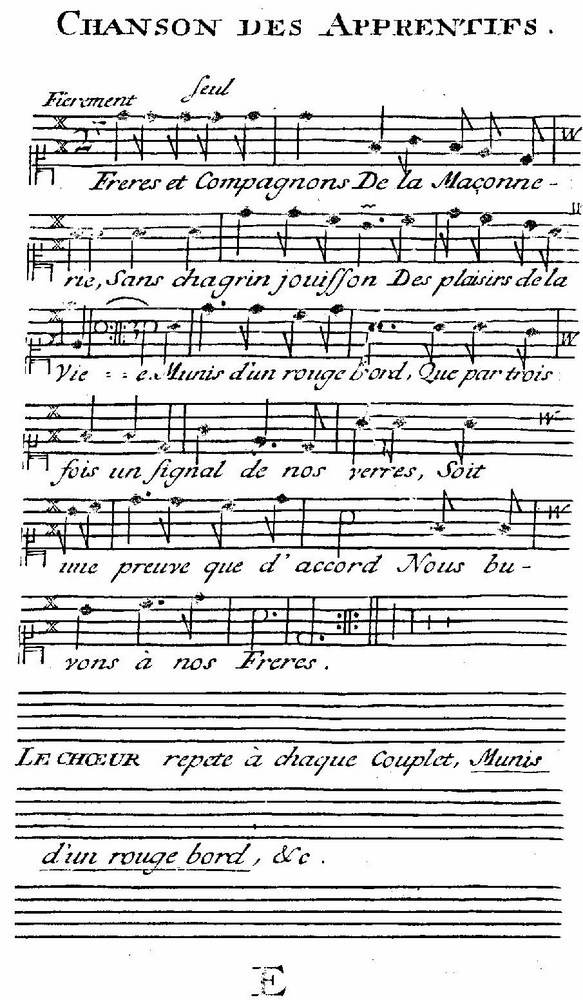 CHANSON DES APPRENTIFS.
Fierement Seul
2
Freres et Compagnons De la Maçonne-
rie, Sans chagrin jouisson Des plaisirs de la
Vie - - e. Munis d'un rouge bord, Que par trois
fois un signal de nos verres, Soit
une preuve que d'accord Nous bu-
vons à nos Freres.
LE CHŒUR repete à chaque Couplet, Munis
d'un rouge bord, &c.
E